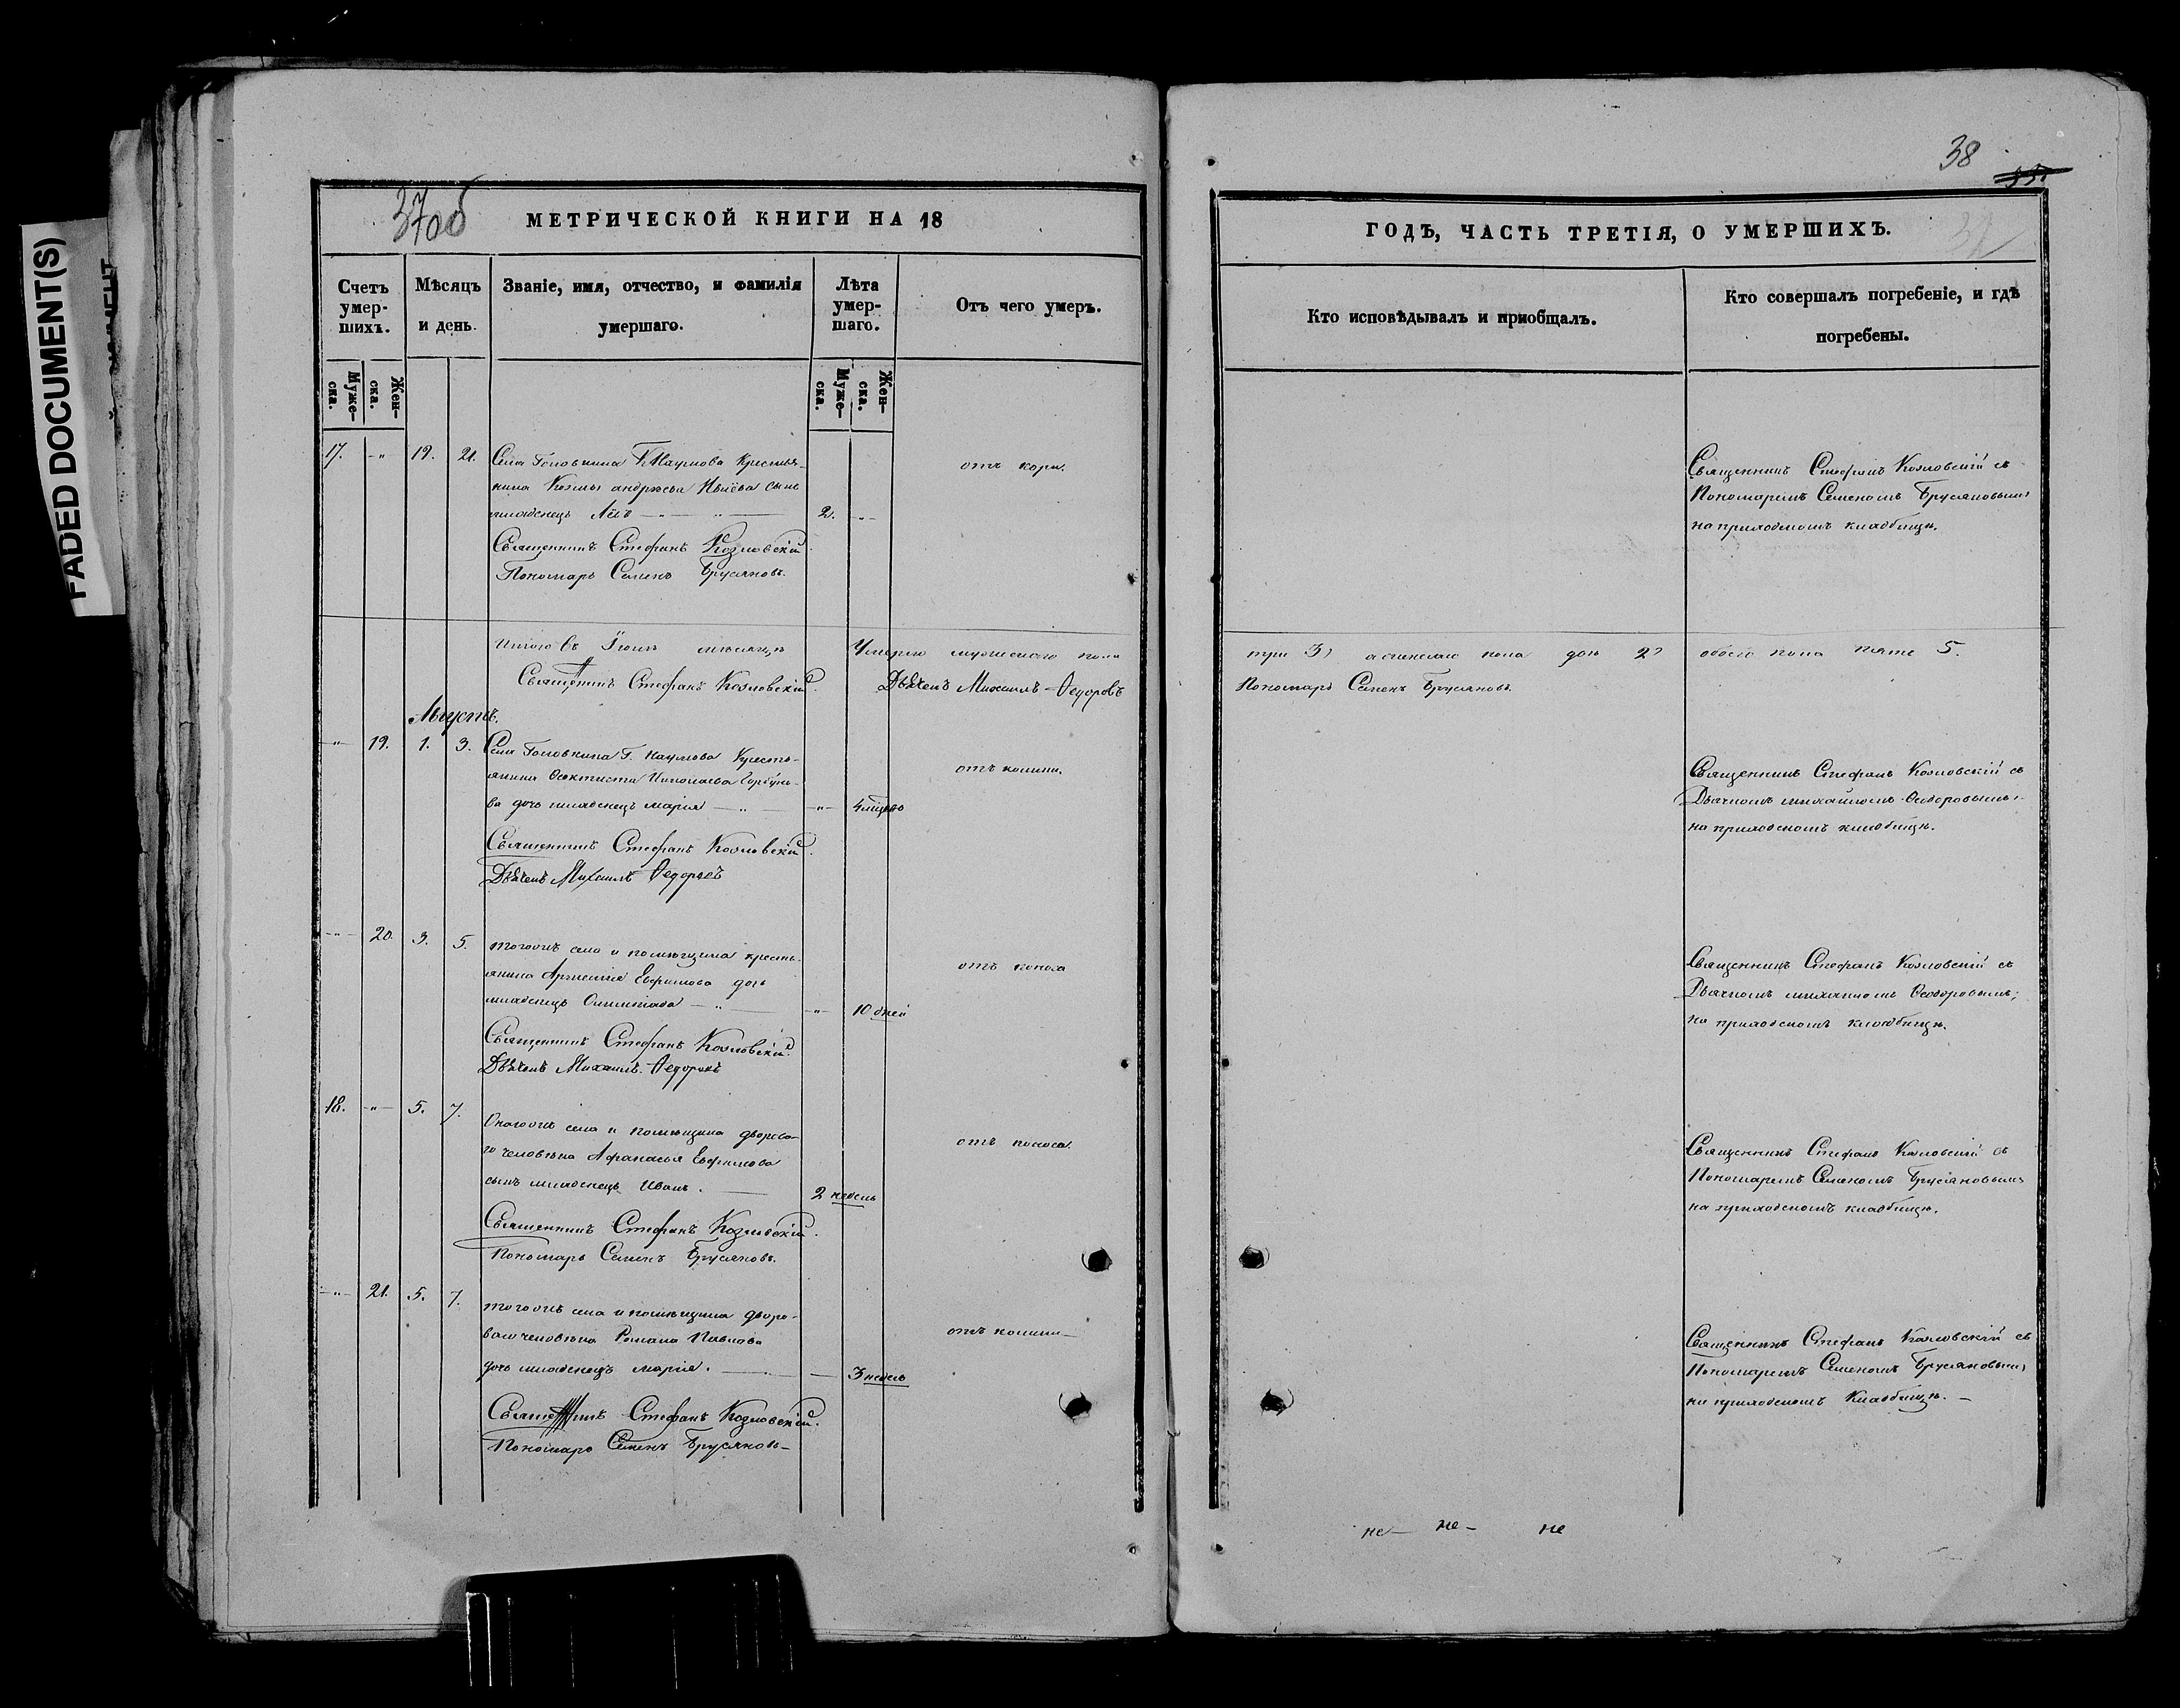 FADED DOCUMENT(S)
37об
МЕТРИЧЕСКОЙ КНИГИ НА 18
Счетъ умер-шихъ.
Мѣсяцъ и день.
Званіе, имя, отчество, и фамилія умершаго.
Лѣта умер-шаго.
Отъ чего умеръ.
Муже-ска.
Жен-ска.
Муже-ска.
Жен-ска.
17. -"- 19. 21. Села Головкина Г. Наумова Крестья-
нина Козмы андреева сынъ
младенецъ 2. -"-
отъ кори.
Священникъ Стефанъ Козловскій
Пономарь Семенъ Брусяновъ.
Итого въ Іюлѣ мѣсяцѣ Умерло мужескаго пола
Священникъ Стефанъ Козловскій. Дьячекъ Михаилъ Федоровъ
Августъ.
-"- 19. 1. 3. Села Головкина Г. Наумова Кресть-
янина Феоктиста Николаева Горбуно-
ва дочь младенецъ Марія -"- 4
отъ
Священникъ Стефанъ Козловскій.
Дьячекъ Михаилъ Федоровъ
-"- 20. 3. 5. тогожъ села и помѣщика кресть-
янина Евфимова дочь
младенецъ Олимпіада -"- 10 дней
отъ поноса
Священникъ Стефанъ Козловскій.
Дьячекъ Михаилъ Федоровъ
18. -"- 5. 7. Оногожъ села и помѣщика дворова-
го человѣка Афанасья Евфимова
сынъ младенецъ Иванъ. 2 недѣль
отъ поноса.
Священникъ Стефанъ Козловскій.
Пономарь Семенъ Брусяновъ.
-"- 21. 5. 7. тогожъ села и помѣщика дворо-
ваго человѣка Романа Павлова
дочь младенецъ марія. 3 недель
отъ
Священникъ Стефанъ Козловскій.
Пономарь Семенъ Брусяновъ
38
ГОДЪ, ЧАСТЬ ТРЕТІЯ, О УМЕРШИХЪ.
Кто исповѣдывалъ и пріобщалъ.
Кто совершалъ погребеніе, и гдѣ погребены.
Священникъ Стефанъ Козловскій съ
Пономаремъ Семеномъ Брусяновымъ
на приходскомъ кладбищѣ.
три 3) а женскаго пола двѣ 2) обоего пола пять 5.
Пономарь Семенъ Брусяновъ.
Священникъ Стефанъ Козловскій съ
Дьячкомъ михаиломъ Феодоровымъ
на приходскомъ кладбищѣ.
Священникъ Стефанъ Козловскій съ
Дьячкомъ михаиломъ Феодоровымъ;
на приходскомъ кладбищѣ.
Священникъ Стефанъ Козловскій съ
Пономаремъ Семеномъ Брусяновымъ
на приходскомъ кладбищѣ.
Священникъ Стефанъ Козловскій съ
Пономаремъ Семеномъ Брусяновымъ
на приходскомъ Кладбищѣ.
не- не- не